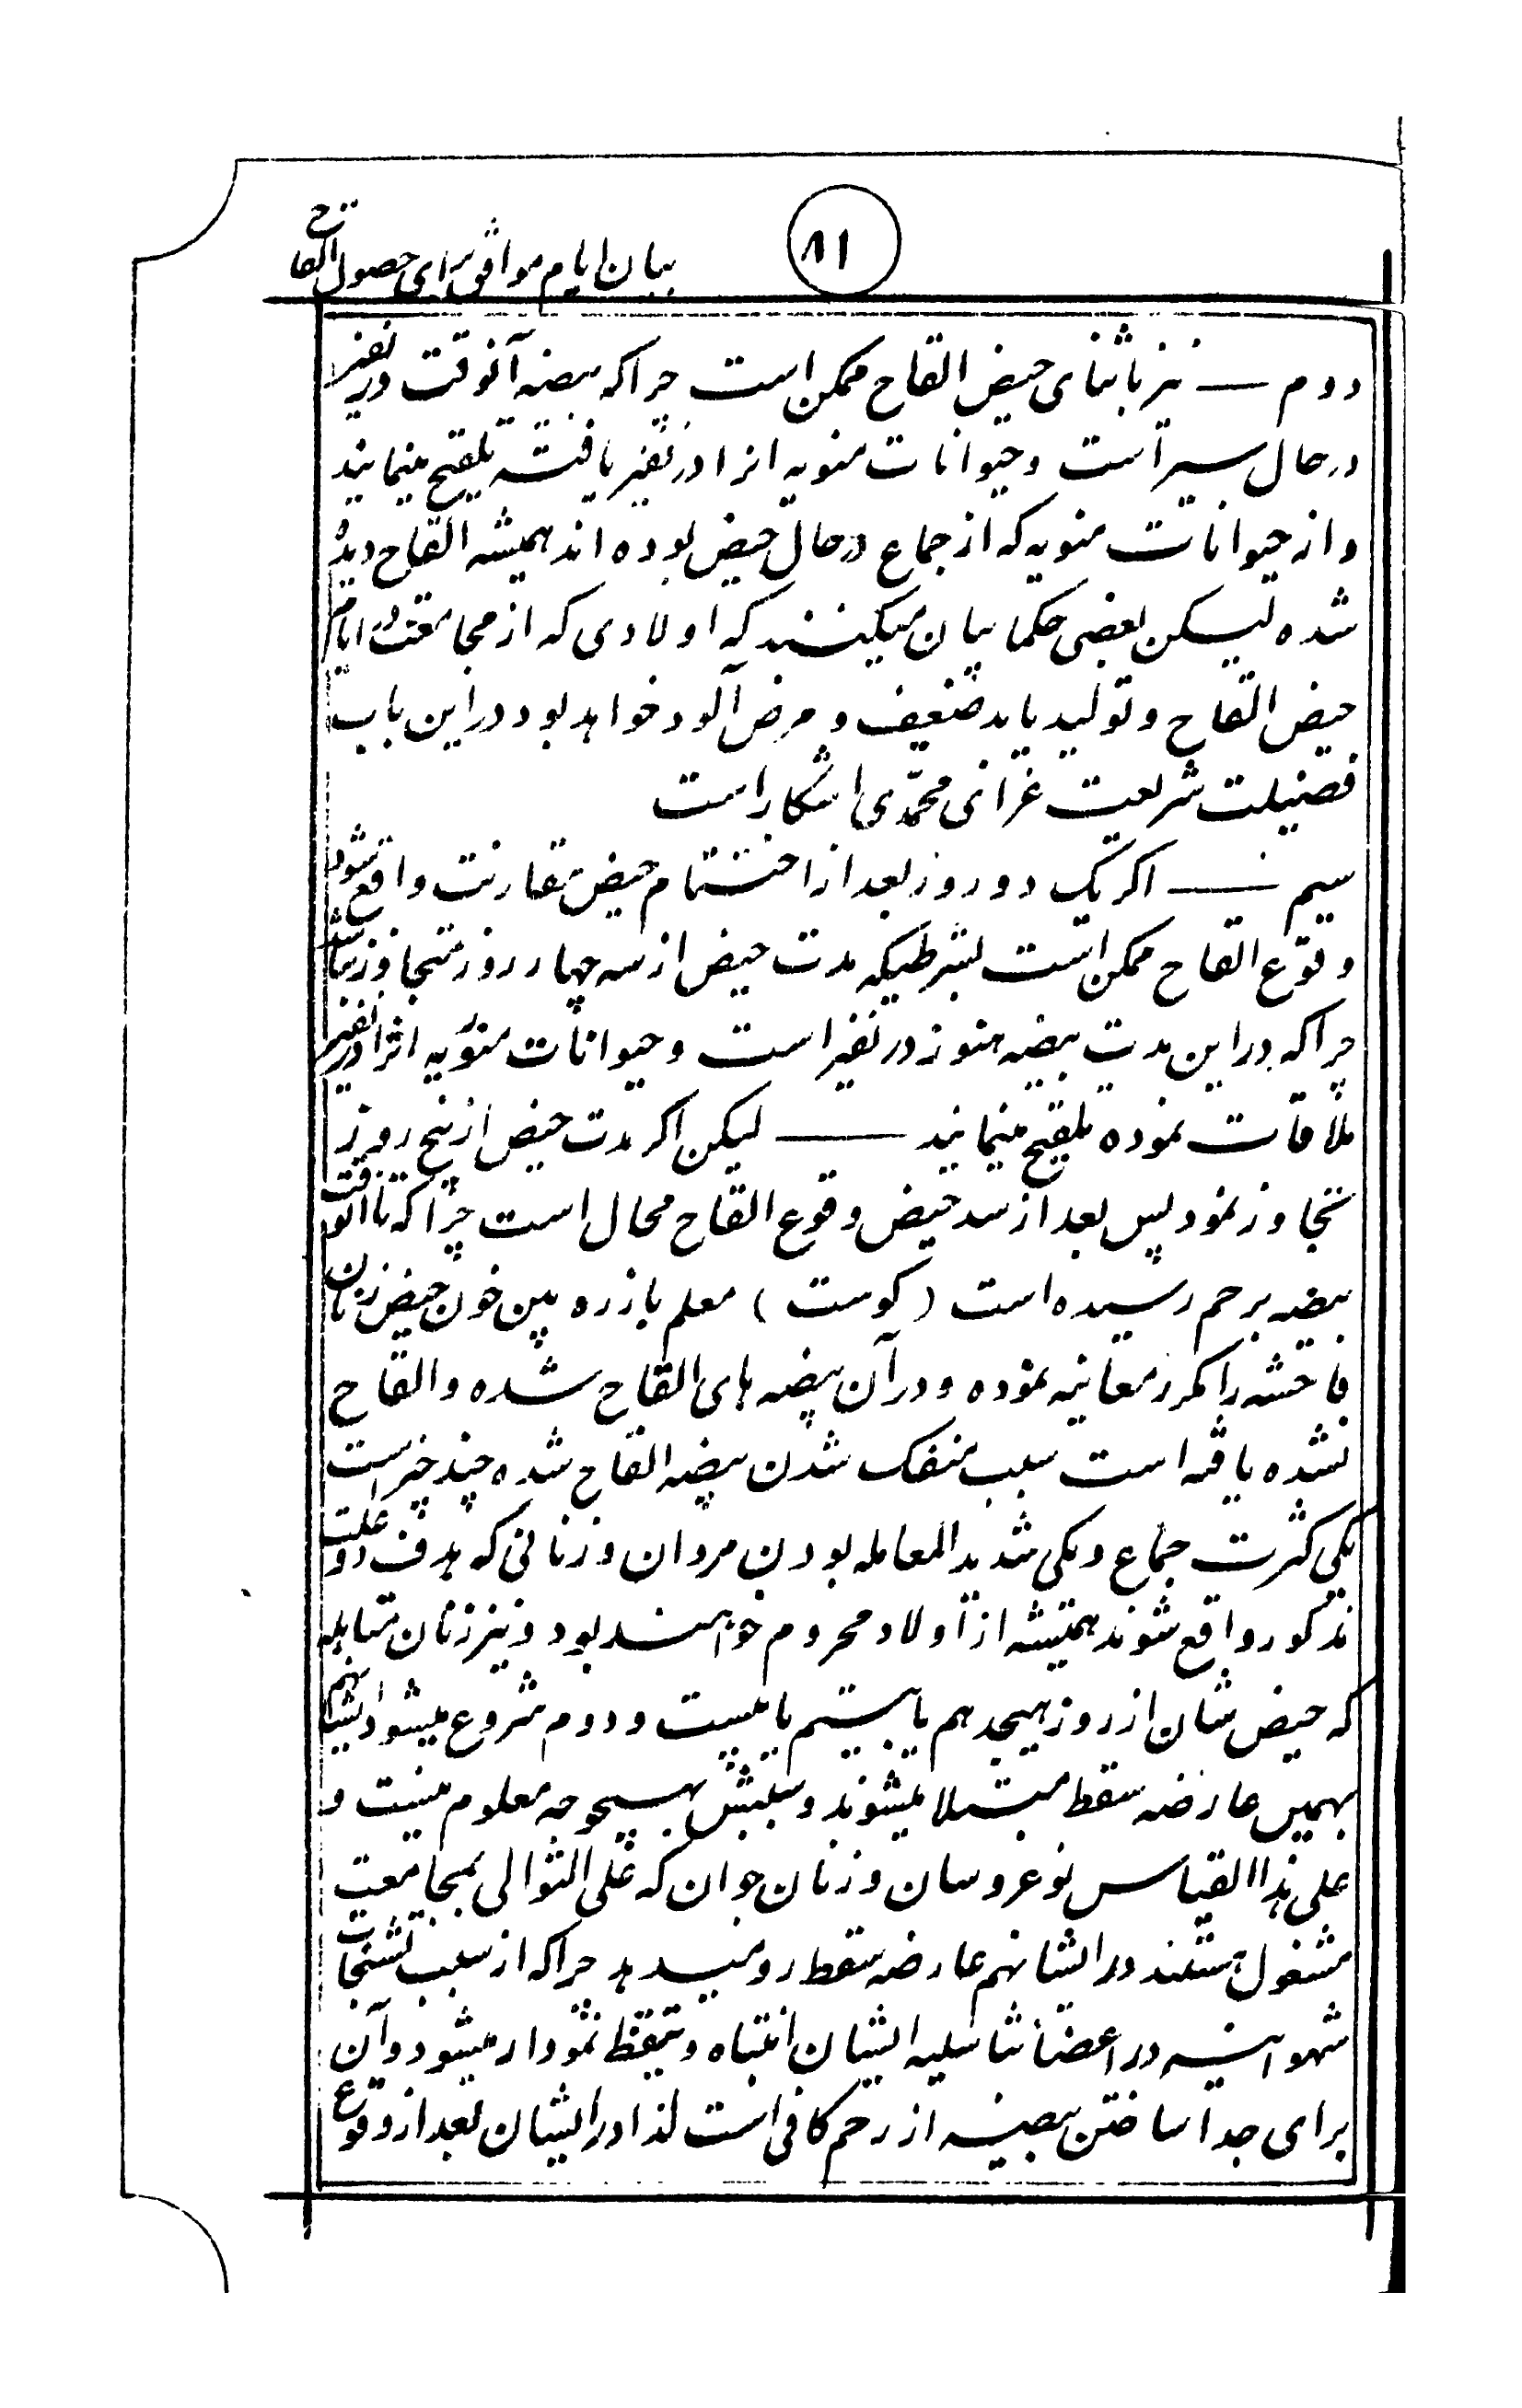 ۸۱
بیان ایام موافق برای حصول القاح
دوم — نیز باثنای حیض القاح ممکن است چراکه بیضه آنوقت در نفیر
در حال سیر است و حیوانات منویه انرا در نفیر یافته تلقیح مینمایند
و از حیوانات منویه که از جماع در حال حیض بوده اند همیشه القاح دیده
شده لیکن بعضی حکما بیان میکنند که اولادی که از مجامعت در ایام
حیض القاح و تولید یابد ضعیف و مرض آلود خواهد بود در این باب
فضیلت شریعت غرای محمّدی اشکار است
سیم — اکر یک دو روز بعد از اختتام حیض مقارنت واقع شود
وقوع القاح ممکن است بشرطیکه مدت حیض از سه چهار روز متجاوز نباشد
چراکه در این مدت بیضه هنوز در نفیر است و حیوانات منویه انرا در نفیر
ملاقات نموده تلقیح مینمایند — لیکن اکر مدت حیض از پنج روز
تجاوز نمود پس بعد از سد حیض وقوع القاح محال است چراکه تا انوقت
بیضه برحم رسیده است (کوست) معلم بازره بین خون حیض زنان
فاحشه را مکرر معاینه نموده و در آن بیضه های القاح شده و القاح
نشده یافته است سبب منفک شدن بیضه القاح شده چند چیز است
یکی کثرت جماع و یکی شدید المعامله بودن مردان و زنانی که هدف دو علت
مذکور واقع شوند همیشه از اولاد محروم خواهند بود و نیز زنان متابله
که حیض شان از روز هیجدهم یا بیستم یا بیست و دوم شروع میشود ایشانهم
بهمین عارضه سقط مبتلا میشوند و سببش بهیچوجه معلوم نیست و
علی هذا القیاس نوعروسان و زنان جوان که علی التوالی بمجامعت
مشغول هستند در ایشانهم عارضه سقط رو میدهد چراکه از سبب تشنجات
شهوانیه در اعضا تناسلیه ایشان انتباه و تیقظ نمودار میشود و آن
برای جدا ساختن بیضه از رحم کافی است لذا در ایشان بعد از وقوع